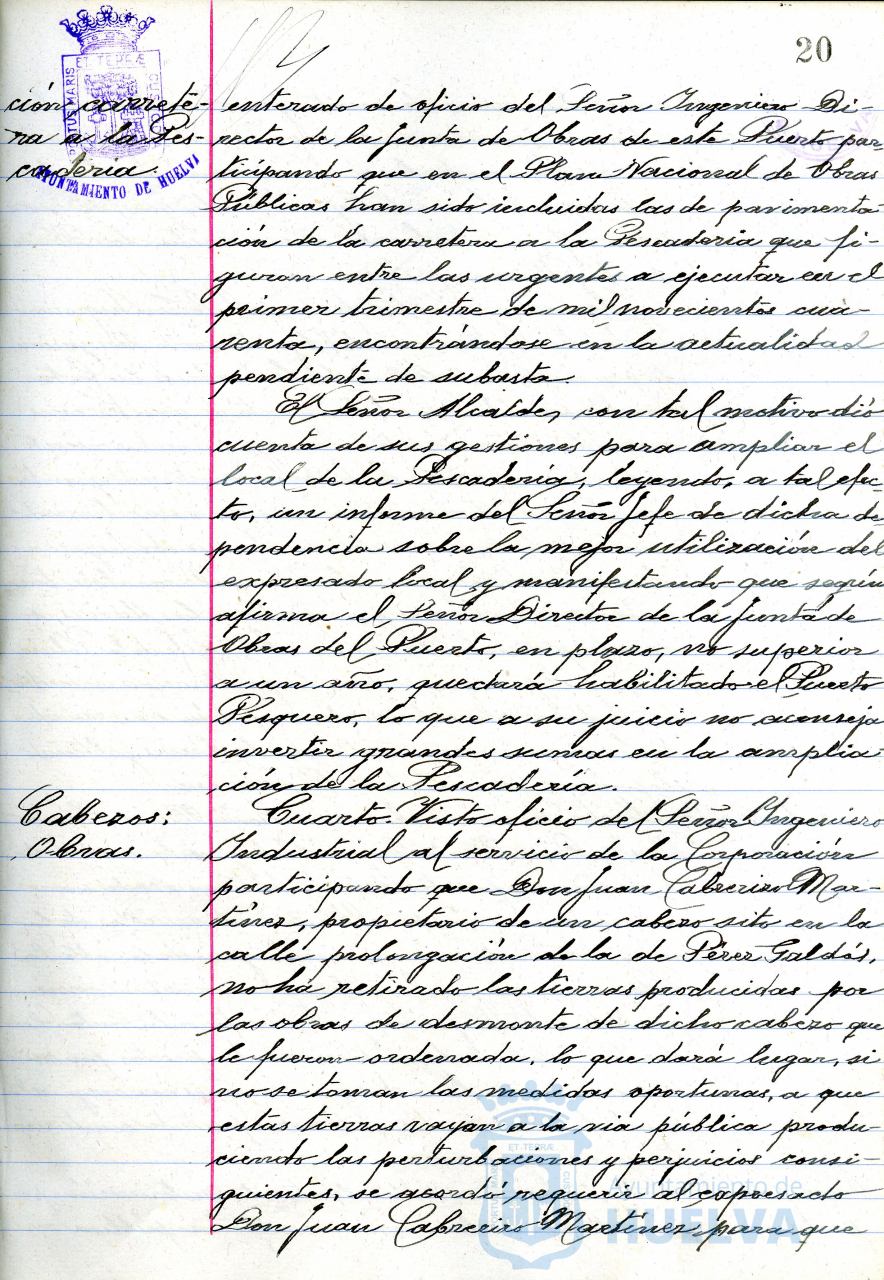 20
PORTUS MARIS ET TERRÆ CUSTODIA
AYUNTAMIENTO DE HUELVA
ción carrete-
ra a la Pes-
cadería.
enterado de oficio del Señor Ingeniero Di-
rector de la Junta de Obras de este Puerto par-
ticipando que en el Plan Nacional de Obras
Públicas han sido incluidas las de pavimenta-
ción de la carretera a la Pescadería que fi-
guran entre las urgentes a ejecutar en el
primer trimestre de mil novecientos cua-
renta, encontrándose en la actualidad
pendiente de subasta.
El Señor Alcalde, con tal motivo dió
cuenta de sus gestiones para ampliar el
local de la Pescadería, leyendo, a tal efec-
to, un informe del Señor Jefe de dicha de-
pendencia sobre la mejor utilización del
expresado local y manifestando que según
afirma el Señor Director de la Junta de
Obras del Puerto, en plazo, no superior
a un año, quedará habilitado el Puerto
Pesquero, lo que a su juicio no aconseja
invertir grandes sumas en la amplia-
ción de la Pescadería.
Cabezos:
Obras.
Cuarto. Visto oficio del Señor Ingeniero
Industrial al servicio de la Corporación
participando que Don Juan Cabrerizo Mar-
tínez, propietario de un cabezo sito en la
calle prolongación de la de Pérez Galdós,
no ha retirado las tierras producidas por
las obras de desmonte de dicho cabezo que
le fueron ordenada, lo que dará lugar, si
no se toman las medidas oportunas, a que
estas tierras vayan a la via pública produ-
ciendo las perturbaciones y perjuicios consi-
guientes, se acordó requerir al expresado
Don Juan Cabrerizo Martínez para que
Ayuntamiento de
HUELVA